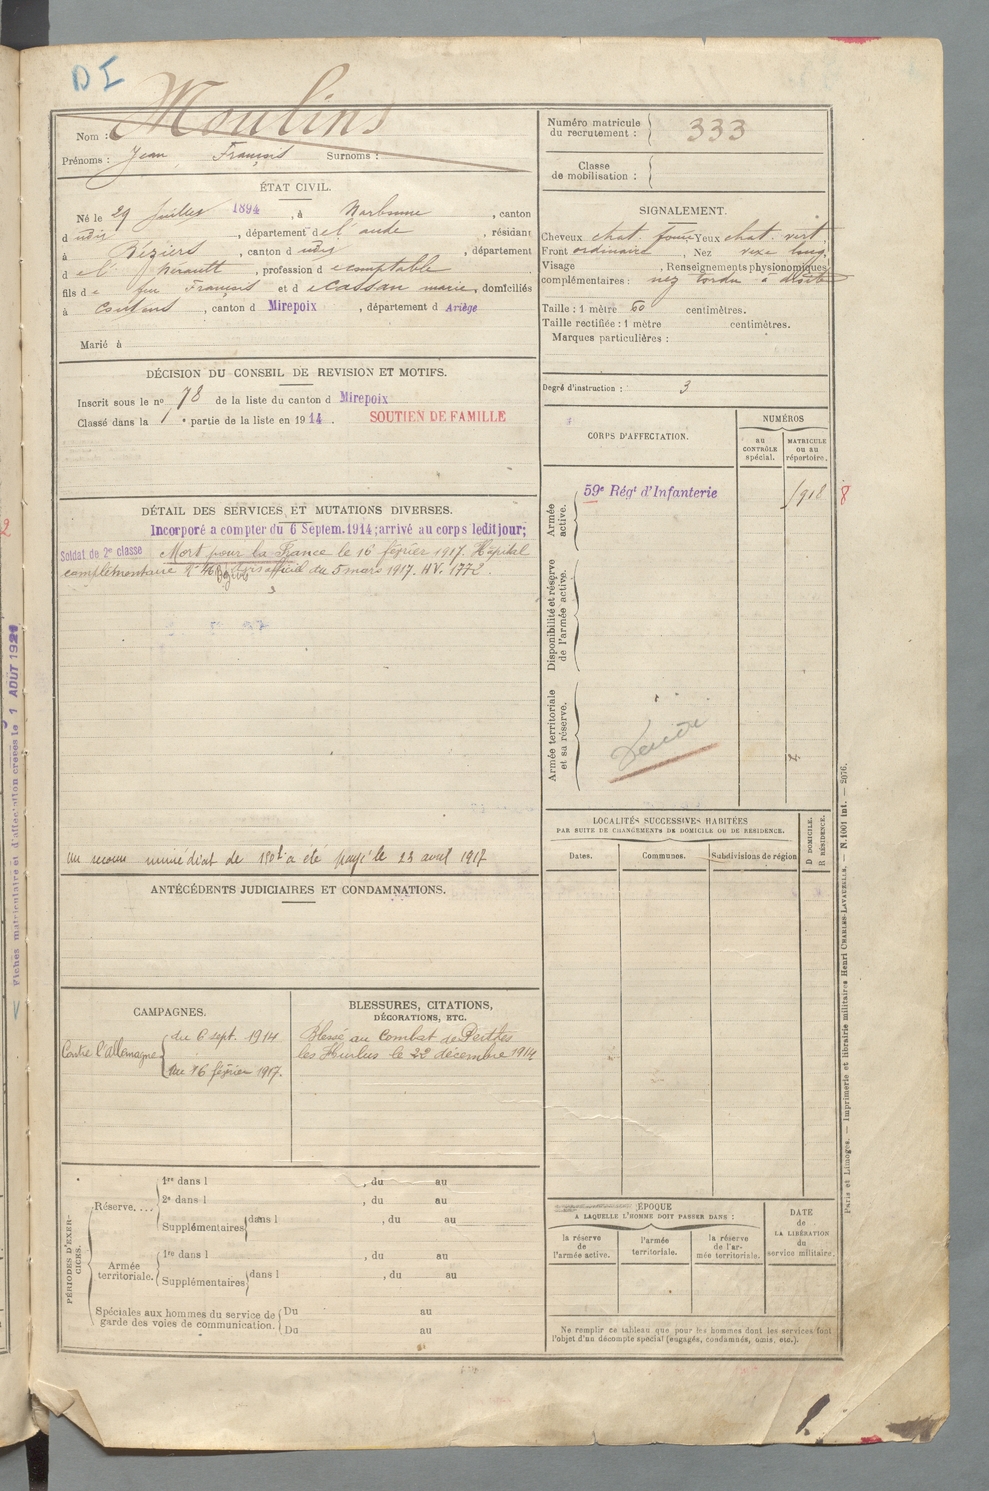 DI
Nom : Moulins
Prénoms : Jean François Surnoms :
ÉTAT CIVIL.
Né le 29 juillet 1894, à Narbonne, canton
d udit, département de l'aude, résidant
à Béziers, canton d udit, département
d el' hérault, profession d e comptable
fils d e feu François et d e Cassan marie, domiciliés
à Coutens, canton d Mirepoix, département d Ariège
Marié à
DÉCISION DU CONSEIL DE REVISION ET MOTIFS.
Inscrit sous le no 78 de la liste du canton d Mirepoix
Classé dans la 1 e partie de la liste en 1914. SOUTIEN DE FAMILLE
DÉTAIL DES SERVICES ET MUTATIONS DIVERSES.
Incorporé à compter du 6 Septem. 1914; arrivé au corps ledit jour;
Soldat de 2e classe Mort pour la France le 16 février 1917. Hôpital
complémentaire N° Béziers avis officiel du 5 mars 1917. HV. 1772.
Un secours immédiat de a été payé le 23 avril 1917
ANTÉCÉDENTS JUDICIAIRES ET CONDAMNATIONS.
CAMPAGNES.
Contre l'allemagne
du 6 sept. 1914
au 16 février 1917.
BLESSURES, CITATIONS,
DÉCORATIONS, ETC.
Blessé au combat de Perthes
les Hurlus le 22 décembre 1914
PÉRIODES D'EXERCICES.
Réserve....
1re dans l , du au
2e dans l , du au
Supplémentaires dans l , du au
Armée territoriale.
1re dans l , du au
Supplémentaires dans l , du au
Spéciales aux hommes du service de Du au
garde des voies de communication. Du au
Numéro matricule
du recrutement : 333
Classe
de mobilisation :
SIGNALEMENT.
Cheveux chat. foncé Yeux chat. vert
Front ordinaire, Nez vexe long.
Visage , Renseignements physionomiques
complémentaires : nez tordu à droite
Taille : 1 mètre 60 centimètres.
Taille rectifiée : 1 mètre centimètres.
Marques particulières :
Degré d'instruction : 3
CORPS D'AFFECTATION.
NUMÉROS
au
CONTRÔLE
spécial.
MATRICULE
ou au
répertoire.
Armée
active.
59e Régt d'Infanterie
918
8
Disponibilité et réserve
de l'armée active.
Armée territoriale
et sa réserve.
LOCALITÉS SUCCESSIVES HABITÉES
PAR SUITE DE CHANGEMENTS DE DOMICILE OU DE RÉSIDENCE.
Dates.
Communes.
Subdivisions de région
D DOMICILE.
R RÉSIDENCE.
ÉPOQUE
A LAQUELLE L'HOMME DOIT PASSER DANS :
la réserve
de
l'armée active.
l'armée
territoriale.
la réserve
de l'ar-
mée territoriale.
DATE
de
LA LIBÉRATION
du
service militaire.
Ne remplir ce tableau que pour les hommes dont les services font
l'objet d'un décompte spécial (engagés, condamnés, omis, etc.).
Paris et Limoges. — Imprimerie et librairie militaires Henri CHARLES-LAVAUZELLE. — N. 1001 int. — 2076.
Fiches matriculaire et d'affectation créées le 1 AOUT 1921